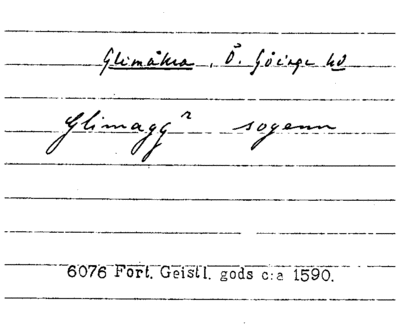 Glimåkra, Ö. Göinge hd
Glimagg^r sogenn
6076 Fort. Geistl. gods c:a 1590.